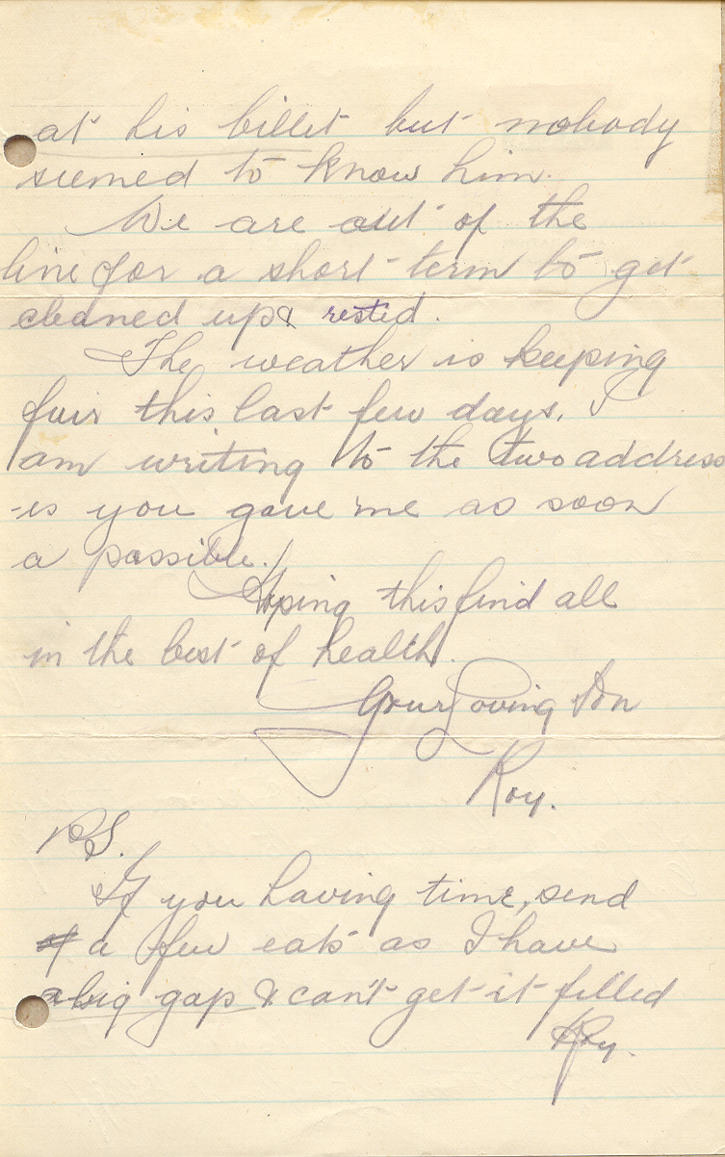 at his billet but nobody
seemed to know him.
We are out of the
line for a short term to get
cleaned up & rested.
The weather is keeping
fair this last few days. I
am writing to the two address
-es you gave me as soon
a possible.
Hoping this find all
in the best of health.
Your Loving Son
Roy.
P.S.
If you having time, send
a few eats as I have
a big gap & can't get it filled
Roy.